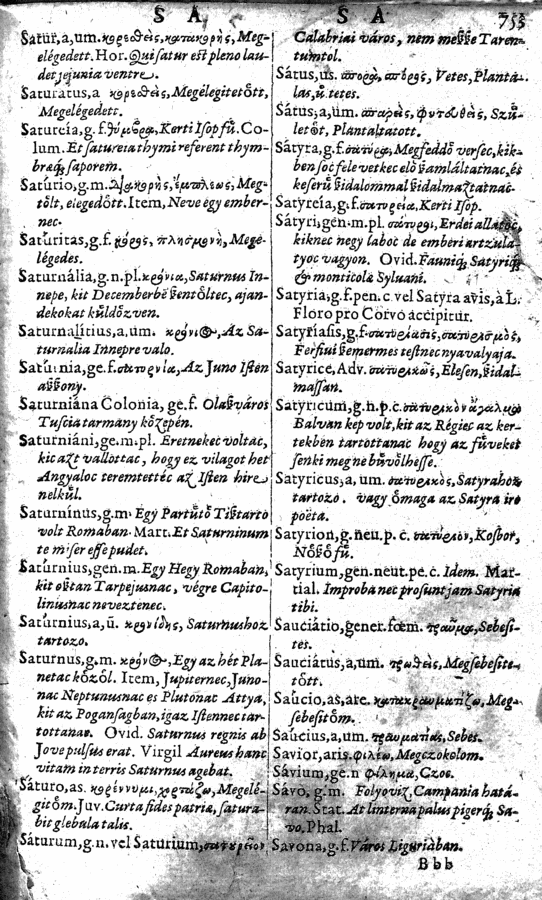 S A S A 755
Satur, a, um. κορεσθεὶς, κατακορὴς, Meg-
elégedett. Hor. Qui satur est pleno lau-
det jejunia ventre.
Saturatus, a κορεσθεὶς, Megélegitetŏtt,
Megelégedett.
Satureía, g.f. θύμβρα, Kerti Isop fű. Co-
lum. Et satureia thymi referent thym-
bræq́; saporem.
Satúrio, g.m. Meg-
tŏlt, elegedŏtt. Item, Neve egy ember-
nec.
Satúritas, g.f. κόρος, πλησμονὴ, Mege-
légedes.
Saturnália, g.n.pl. κρόνια, Saturnus In-
nepe, kit Decemberbē ßentŏltec, ajan-
dekokat kŭldŏzven.
Saturnalítius, a, um. κρόνιος, Az Sa-
turnalia Innepre valo.
Satúrnia, ge.f. σατυρνία, Az Juno Isten
aßßony.
Saturniána Colonia, ge.f. Olaßváros
Tuscia tarmany kŏzepén.
Saturniáni, ge.m.pl. Eretnekec voltac,
kic azt vallottac, hogy ez vilagot het
Angyaloc teremtettéc az Isten hire
nelkŭl.
Saturnínus, g.m. Egy Partŭtŏ Tißtarto
volt Romaban. Mart. Et Saturninum
te miser esse pudet.
Satúrnius, gen.m. Egy Hegy Romaban,
kit oßtan Tarpejusnac, végre Capito-
liniusnac neveztenec.
Satúrnius, a, ū. κρονίδης, Saturnushoz
tartozo.
Saturnus, g.m. κρόνος, Egy az hét Pla-
netac kŏzŏl. Item, Jupiternec, Juno-
nac Neptunusnac es Plutónac Attya,
kit az Pogansagban, igaz Istennec tar-
tottanac. Ovid. Saturnus regnis ab
Jove pulsus erat. Virgil Aureus hanc
vitam in terris Saturnus agebat.
Sáturo, as. κορέννυμι, χορτάζω, Megelé-
gitŏm. Juv. Curta fides patriæ, satura-
bit glebula talis.
Sáturum, g.n. vel Saturium, σατυρεῖον
Calabriai város, nem meßße Taren-
tumtol.
Sátus, us. σπορὰ, σπόρος, Vetes, Plantá-
las, ű. tetes.
Sátus, a, um. σπαρεὶς, φυτευθεὶς, Szŭ-
letŏt, Plantaltatott.
Sátyra, g.f. σατύρα, Megfeddŏ versec, kik-
ben soc fele vetkec elŏ ßamláltatnac, és
keserŭ ßidalommal ßidalmaztatnac.
Satyreía, g.f. σατυρεία, Kerti Isop.
Sátyri, gen.m.pl. σάτυροι, Erdei allatoc,
kiknec negy laboc de emberi artzula-
tyoc vagyon. Ovid. Fauniq́; Satyriq́;
& monticolæ Syluani.
Satyria, g.f. pen.c. vel Satyra avis, à L.
Floro pro Corvo accipitur.
Satyríasis, g.f. σατυρίασις, σατυριασμὸς,
Ferfiui ßemermes testnec nyavalyaja.
Satyrice, Adv. σατυρικῶς, Elesen, ßidal-
massan.
Satyricum, g.n.p.c. σατυρικὸν ἄγαλμα
Balvan kep volt, kit az Régiec az ker-
tekbēn tartottanac hogy az fŭveket
senki meg ne bŭvŏlhesse.
Satyricus, a, um. σατυρικὸς, Satyrahoz
tartozo. vagy ŏmaga az Satyra iro
poëta.
Satyrion, g.neu.p.c. σατύριον, Kosbor,
Nŏßŏ fŭ.
Satyrium, gen.neut.pe.c. Idem. Mar-
tial. Improba nec prosunt jam Satyria
tibi.
Sauciátio, gener.fœm. τραῦμα, Sebesi-
tes.
Sauciátus, a, um. τρωθεὶς, Megsebesite-
tŏtt.
Saúcio, as, are. κατατραυματίζω, Meg-
sebesitŏm.
Saúcius, a, um. τραυματίας, Sebes.
Savior, aris. φιλέω, Megczokolom.
Sávium, ge.n φίλημα, Czoc.
Sávo, g.m. Folyoviz, Campania hatá-
ran. Stat. At linterna palus pigerq́; Sa-
vo. Phal.
Savona, g.f. Város Liguriàban.
Bbb